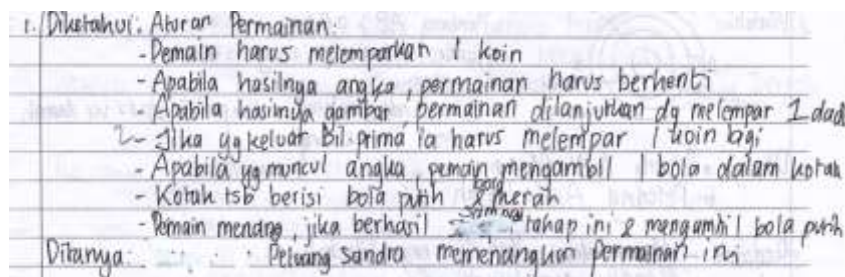 1. Diketahui: Aturan Permainan:
- Pemain harus melemparkan 1 koin
- Apabila hasilnya angka, permainan harus berhenti
- Apabila hasilnya gambar permainan dilanjutkan dg melempar 1 dadu
- Jika yg keluar Bil prima ia harus melempar 1 koin lagi
- Apabila yg muncul angka, pemain mengambil 1 bola dalam kotak
- Kotak tsb berisi bola putih & merah
- Pemain menang, jika berhasil sampai tahap ini & mengambil bola putih
Ditanya: Peluang Sandra memenangkan permainan ini